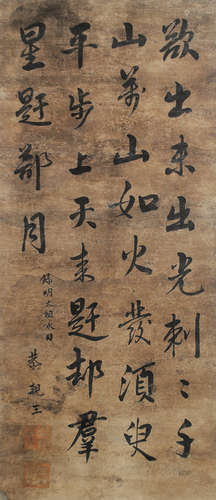 欲出未出光刺〻千
山萬山如火發須臾
平步上天来趕却羣
星趕却月
錄明太祖
恭親王